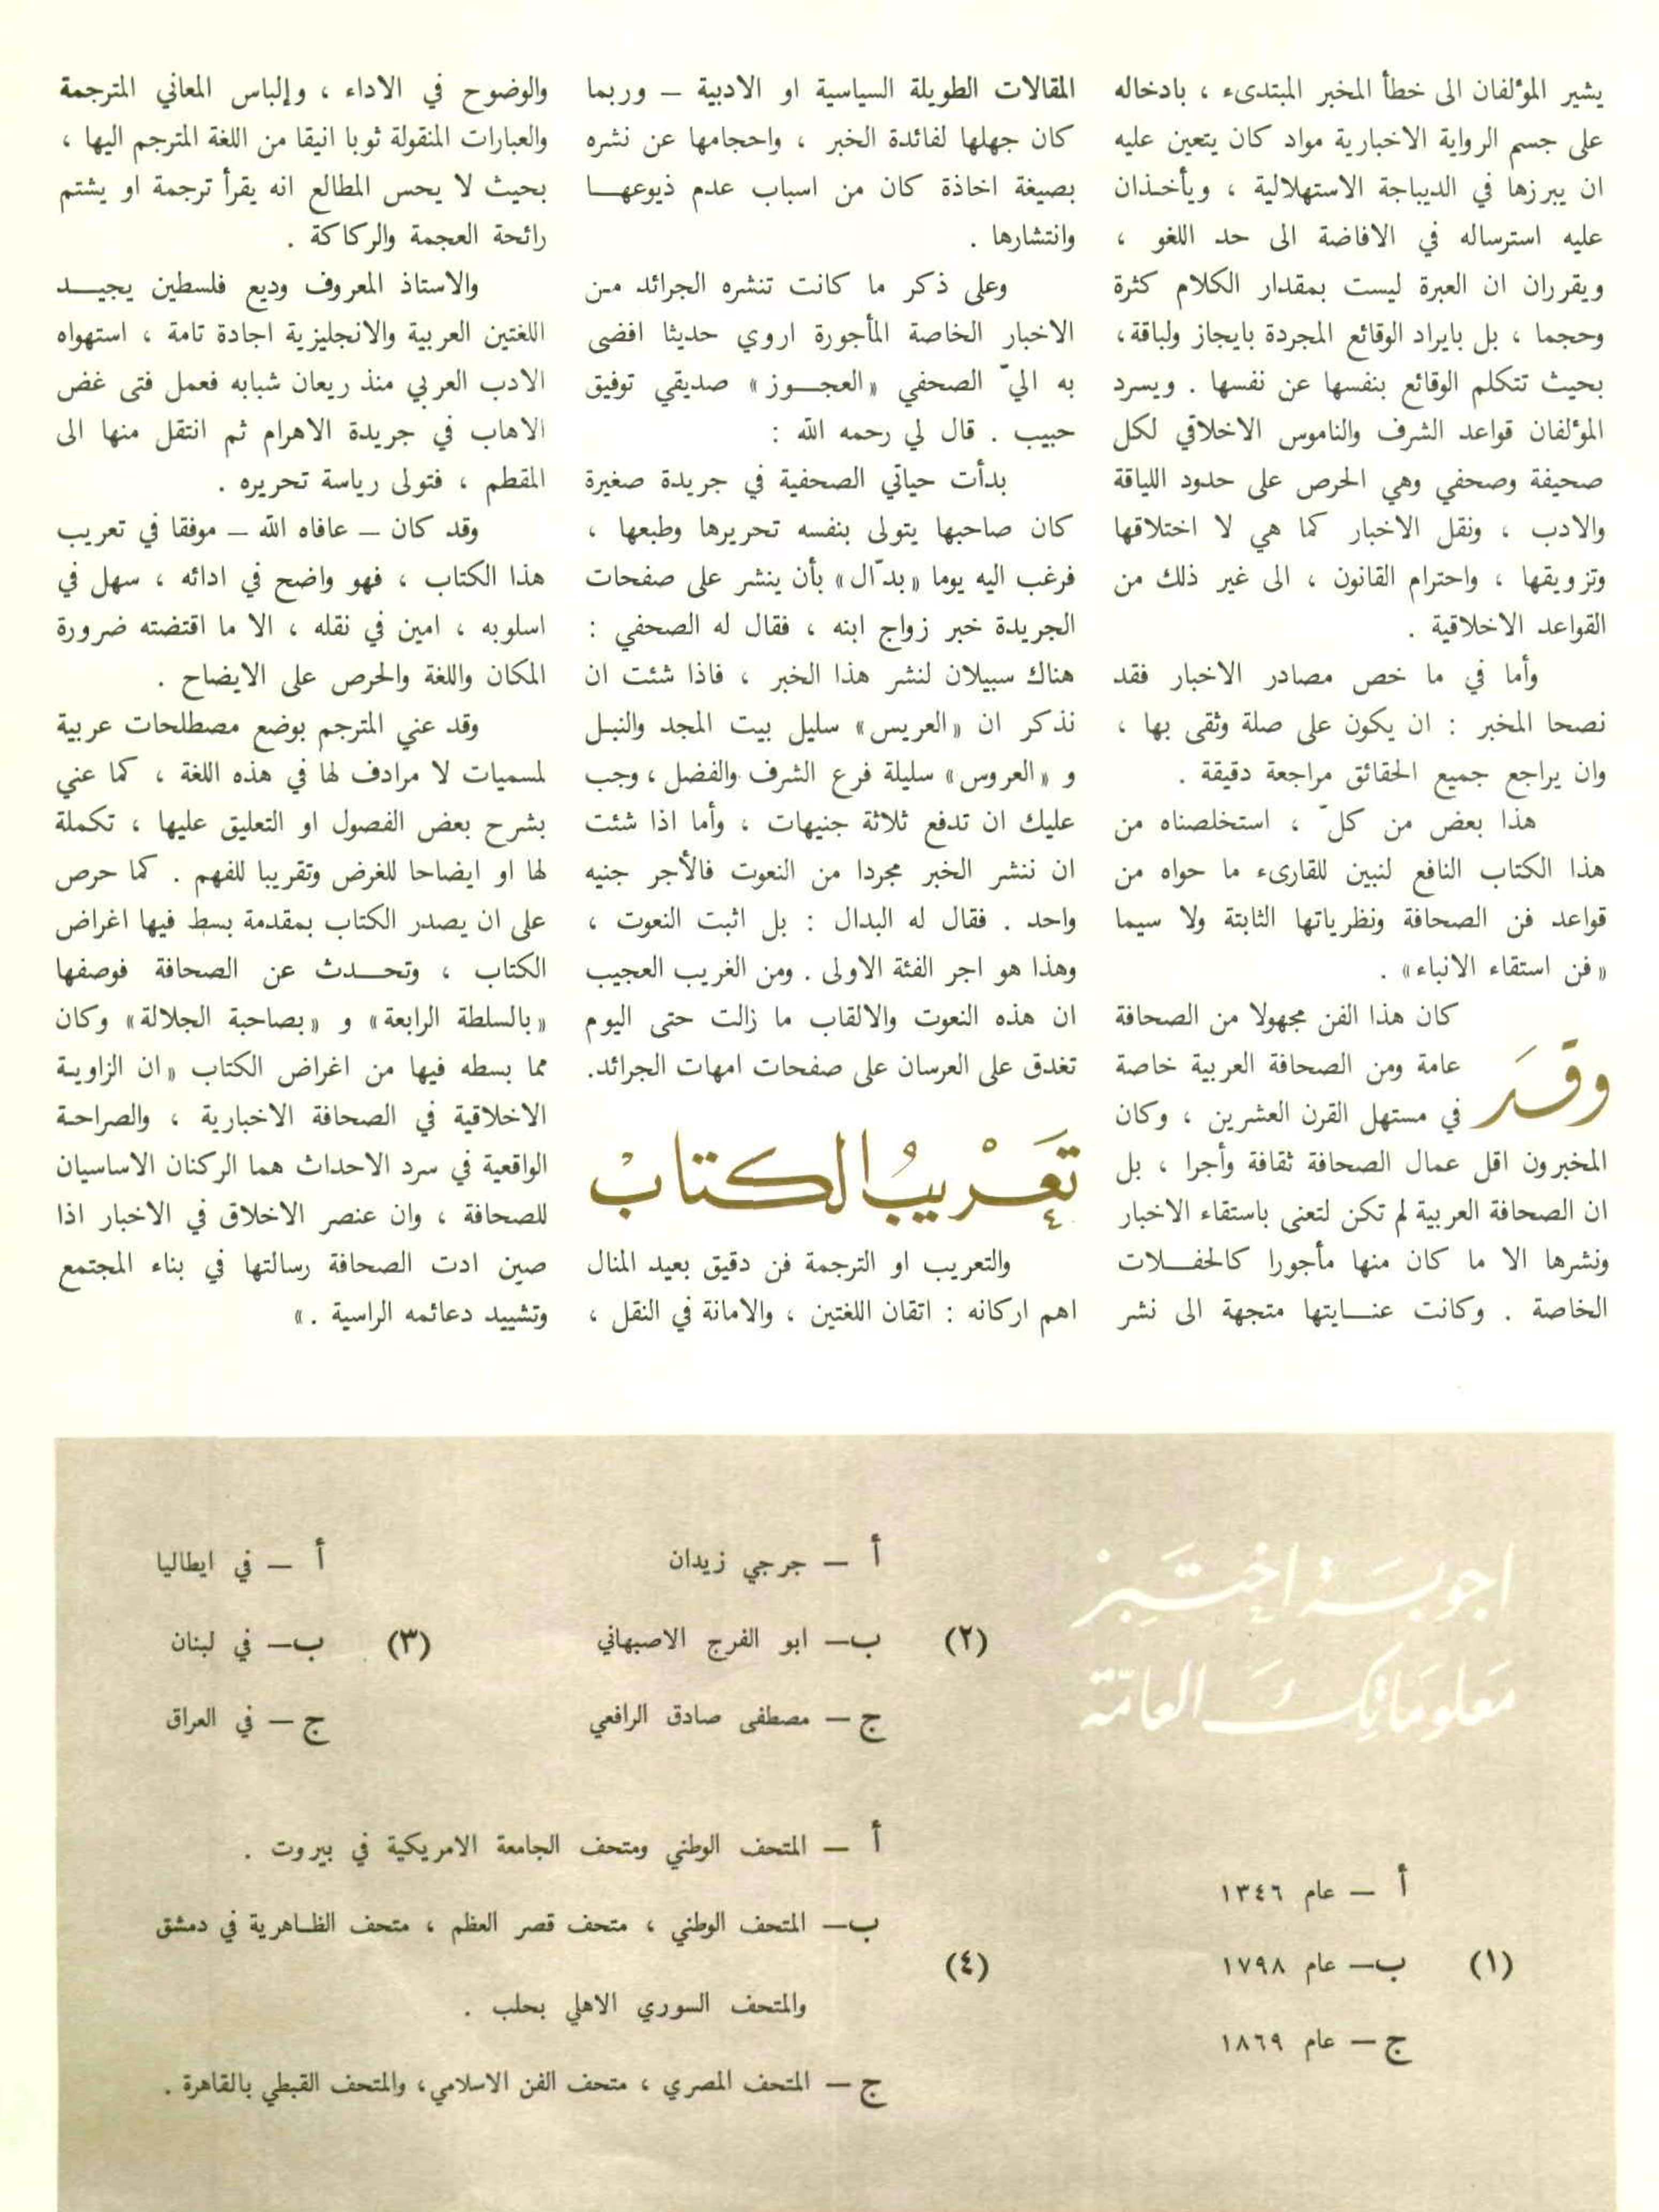 يشير المؤلفان الى خطأ المخبر المبتدىء ، بادخاله
على جسم الرواية الاخبارية مواد كان يتعين عليه
ان يبرزها في الديباجة الاستهلالية ، ويأخـذان
عليه استرساله في الافاضة الى حد اللغو ،
ويقرران ان العبرة ليست بمقدار الكلام كثرة
وحجما ، بل بايراد الوقائع المجردة بايجاز ولباقة،
بحيث تتكلم الوقائع بنفسها عن نفسها . ويسرد
المؤلفان قواعد الشرف والناموس الاخلاقي لكل
صحيفة وصحفي وهي الحرص على حدود اللياقة
والادب ، ونقل الاخبار كما هي لا اختلاقها
وتزويقها ، واحترام القانون ، الى غير ذلك من
القواعد الاخلاقية .
وأما في ما خص مصادر الاخبار فقد
نصحا المخبر : ان يكون على صلة وثقى بها ،
وان يراجع جميع الحقائق مراجعة دقيقة .
هذا بعض من كلّ ، استخلصناه من
هذا الكتاب النافع لنبين للقارىء ما حواه من
قواعد فن الصحافة ونظرياتها الثابتة ولا سيما
«فن استقاء الانباء» .
وقد كان هذا الفن مجهولا من الصحافة
عامة ومن الصحافة العربية خاصة
في مستهل القرن العشرين ، وكان
المخبرون اقل عمال الصحافة ثقافة وأجرا ، بل
ان الصحافة العربية لم تكن لتعنى باستقاء الاخبار
ونشرها الا ما كان منها مأجورا كالحفـــلات
الخاصة . وكانت عنـــايتها متجهة الى نشر
المقالات الطويلة السياسية او الادبية – وربما
كان جهلها لفائدة الخبر ، واحجامها عن نشره
بصيغة اخاذة كان من اسباب عدم ذيوعهـــا
وانتشارها .
وعلى ذكر ما كانت تنشره الجرائد من
الاخبار الخاصة المأجورة اروي حديثا افضى
به اليّ الصحفي «العجـــوز» صديقي توفيق
حبيب . قال لي رحمه الله :
بدأت حياتي الصحفية في جريدة صغيرة
كان صاحبها يتولى بنفسه تحريرها وطبعها ،
فرغب اليه يوما «بدّال» بأن ينشر على صفحات
الجريدة خبر زواج ابنه ، فقال له الصحفي :
هناك سبيلان لنشر هذا الخبر ، فاذا شئت ان
نذكر ان «العريس» سليل بيت المجد والنبـل
و «العروس» سليلة فرع الشرف والفضل ، وجب
عليك ان تدفع ثلاثة جنيهات ، وأما اذا شئت
ان ننشر الخبر مجردا من النعوت فالأجر جنيه
واحد . فقال له البدال : بل اثبت النعوت ،
وهذا هو اجر الفئة الاولى . ومن الغريب العجيب
ان هذه النعوت والالقاب ما زالت حتى اليوم
تغدق على العرسان على صفحات امهات الجرائد.
تعَرْيبُ الكتابْ
والتعريب او الترجمة فن دقيق بعيد المنال
اهم اركانه : اتقان اللغتين ، والامانة في النقل ،
والوضوح في الاداء ، وإلباس المعاني المترجمة
والعبارات المنقولة ثوبا انيقا من اللغة المترجم اليها ،
بحيث لا يحس المطالع انه يقرأ ترجمة او يشتم
رائحة العجمة والركاكة .
والاستاذ المعروف وديع فلسطين يجيـــد
اللغتين العربية والانجليزية اجادة تامة ، استهواه
الادب العربي منذ ريعان شبابه فعمل فتى غض
الاهاب في جريدة الاهرام ثم انتقل منها الى
المقطم ، فتولى رياسة تحريره .
وقد كان – عافاه الله – موفقا في تعريب
هذا الكتاب ، فهو واضح في ادائه ، سهل في
اسلوبه ، امين في نقله ، الا ما اقتضته ضرورة
المكان واللغة والحرص على الايضاح .
وقد عني المترجم بوضع مصطلحات عربية
لمسميات لا مرادف لها في هذه اللغة ، كما عني
بشرح بعض الفصول او التعليق عليها ، تكملة
لها او ايضاحا للغرض وتقريبا للفهم . كما حرص
على ان يصدر الكتاب بمقدمة بسط فيها اغراض
الكتاب ، وتحـــدث عن الصحافة فوصفها
«بالسلطة الرابعة» و «بصاحبة الجلالة» وكان
مما بسطه فيها من اغراض الكتاب «ان الزاويـة
الاخلاقية في الصحافة الاخبارية ، والصراحـة
الواقعية في سرد الاحداث هما الركنان الاساسيان
للصحافة ، وان عنصر الاخلاق في الاخبار اذا
صين ادت الصحافة رسالتها في بناء المجتمع
وتشييد دعائمه الراسية .»
اجوبَة اختَبِرْ
مَعلومَاتِكَ العامّة
(١)
أ – عام ١٣٤٦
ب– عام ١٧٩٨
ج – عام ١٨٦٩
(٢)
أ – جرجي زيدان
ب– ابو الفرج الاصبهاني
ج – مصطفى صادق الرافعي
(٣)
أ – في ايطاليا
ب– في لبنان
ج – في العراق
(٤)
أ – المتحف الوطني ومتحف الجامعة الامريكية في بيروت .
ب– المتحف الوطني ، متحف قصر العظم ، متحف الظـاهرية في دمشق
والمتحف السوري الاهلي بحلب .
ج – المتحف المصري ، متحف الفن الاسلامي، والمتحف القبطي بالقاهرة .